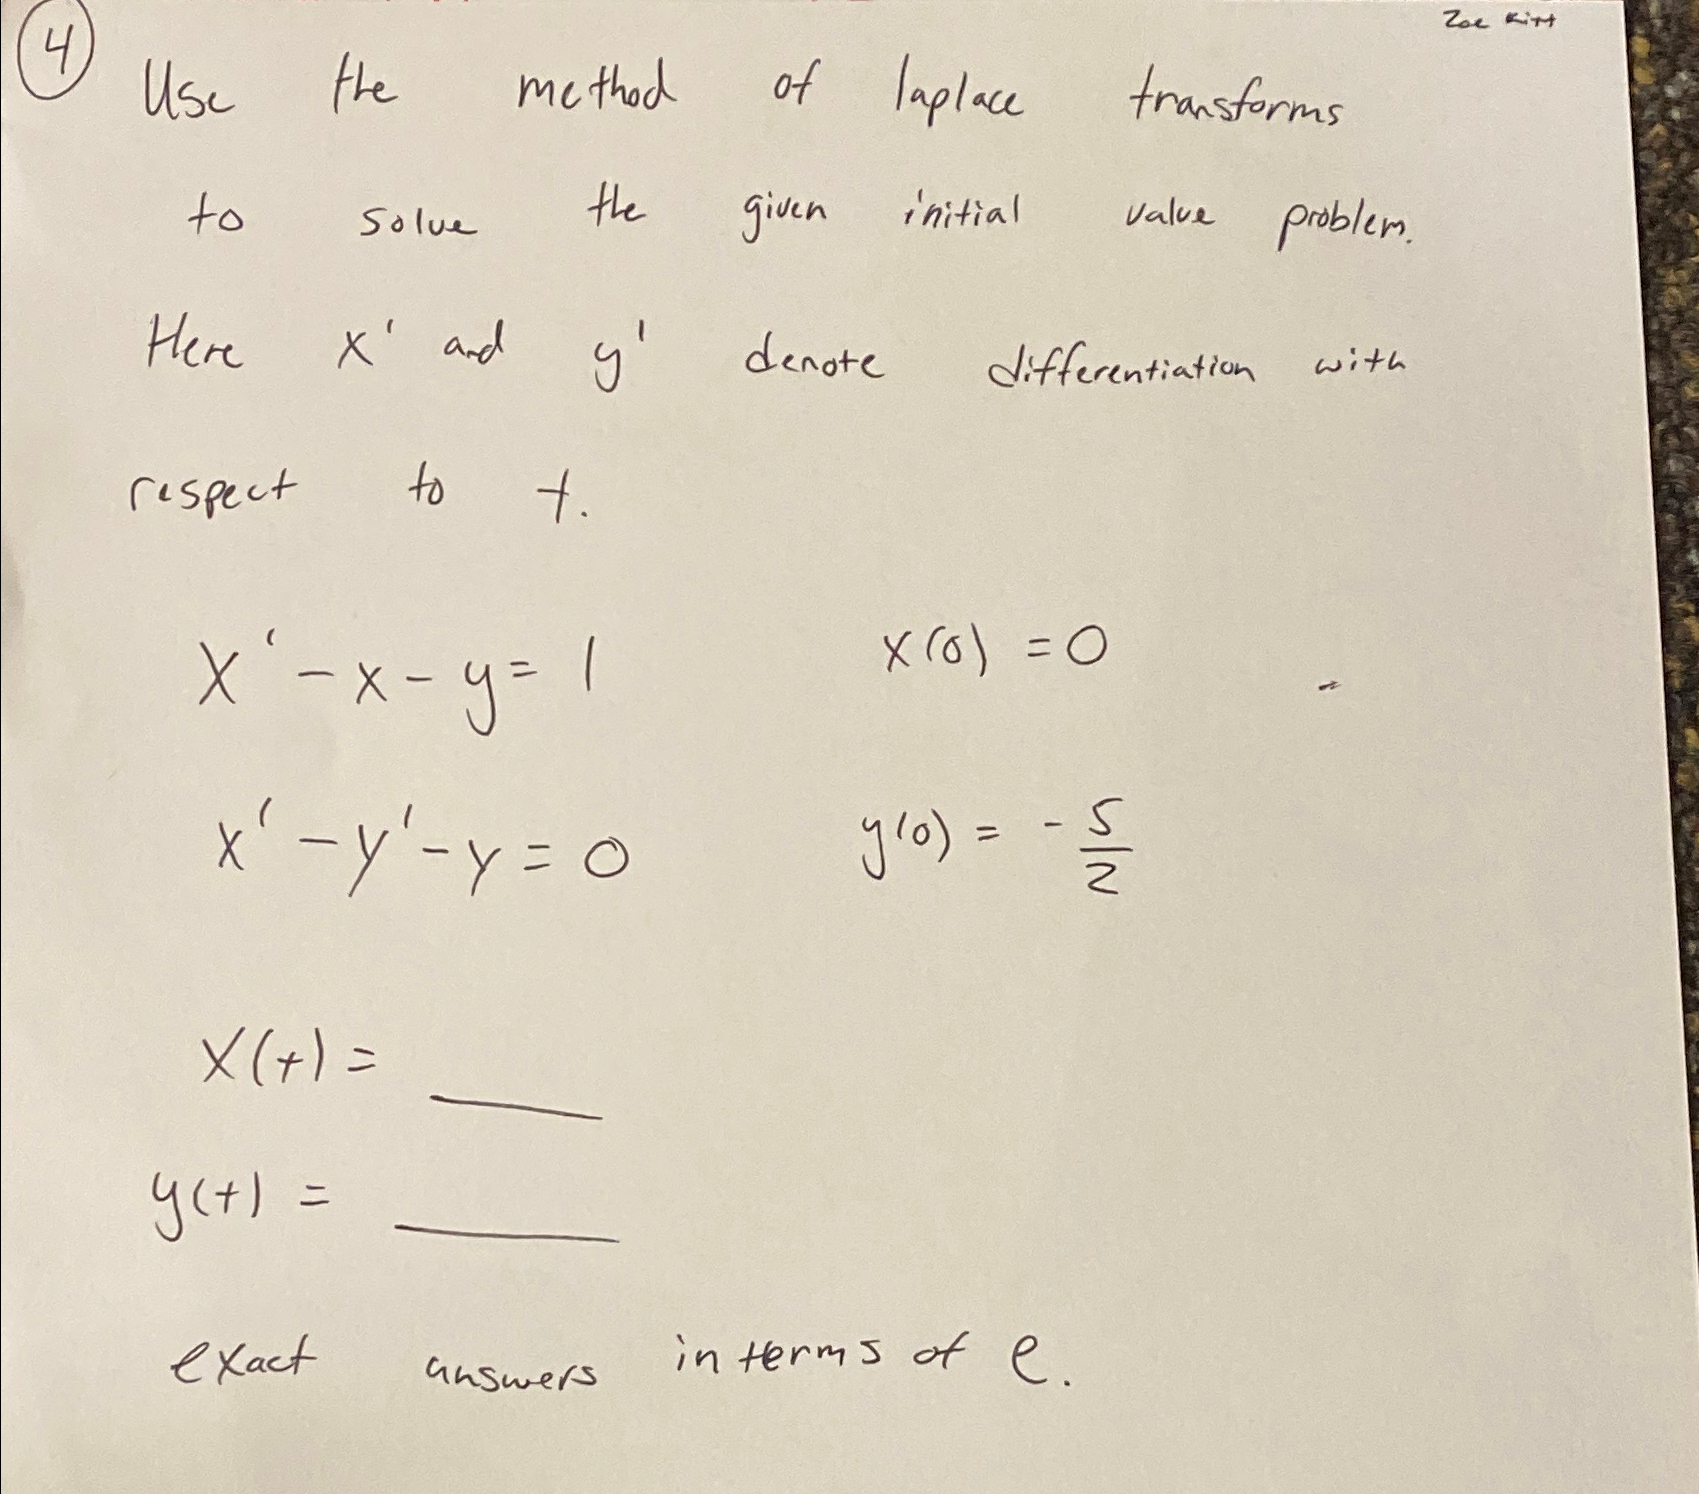 Zoe Kitt
4
Use the method of laplace transforms
to solve the given initial value problem.
Here x' and y' denote differentiation with
respect to t.
x' - x - y = 1 x(0) = 0
x' - y' - y = 0 y(0) = - 5/2
x(t) = ____
y(t) = ____
exact answers in terms of e.